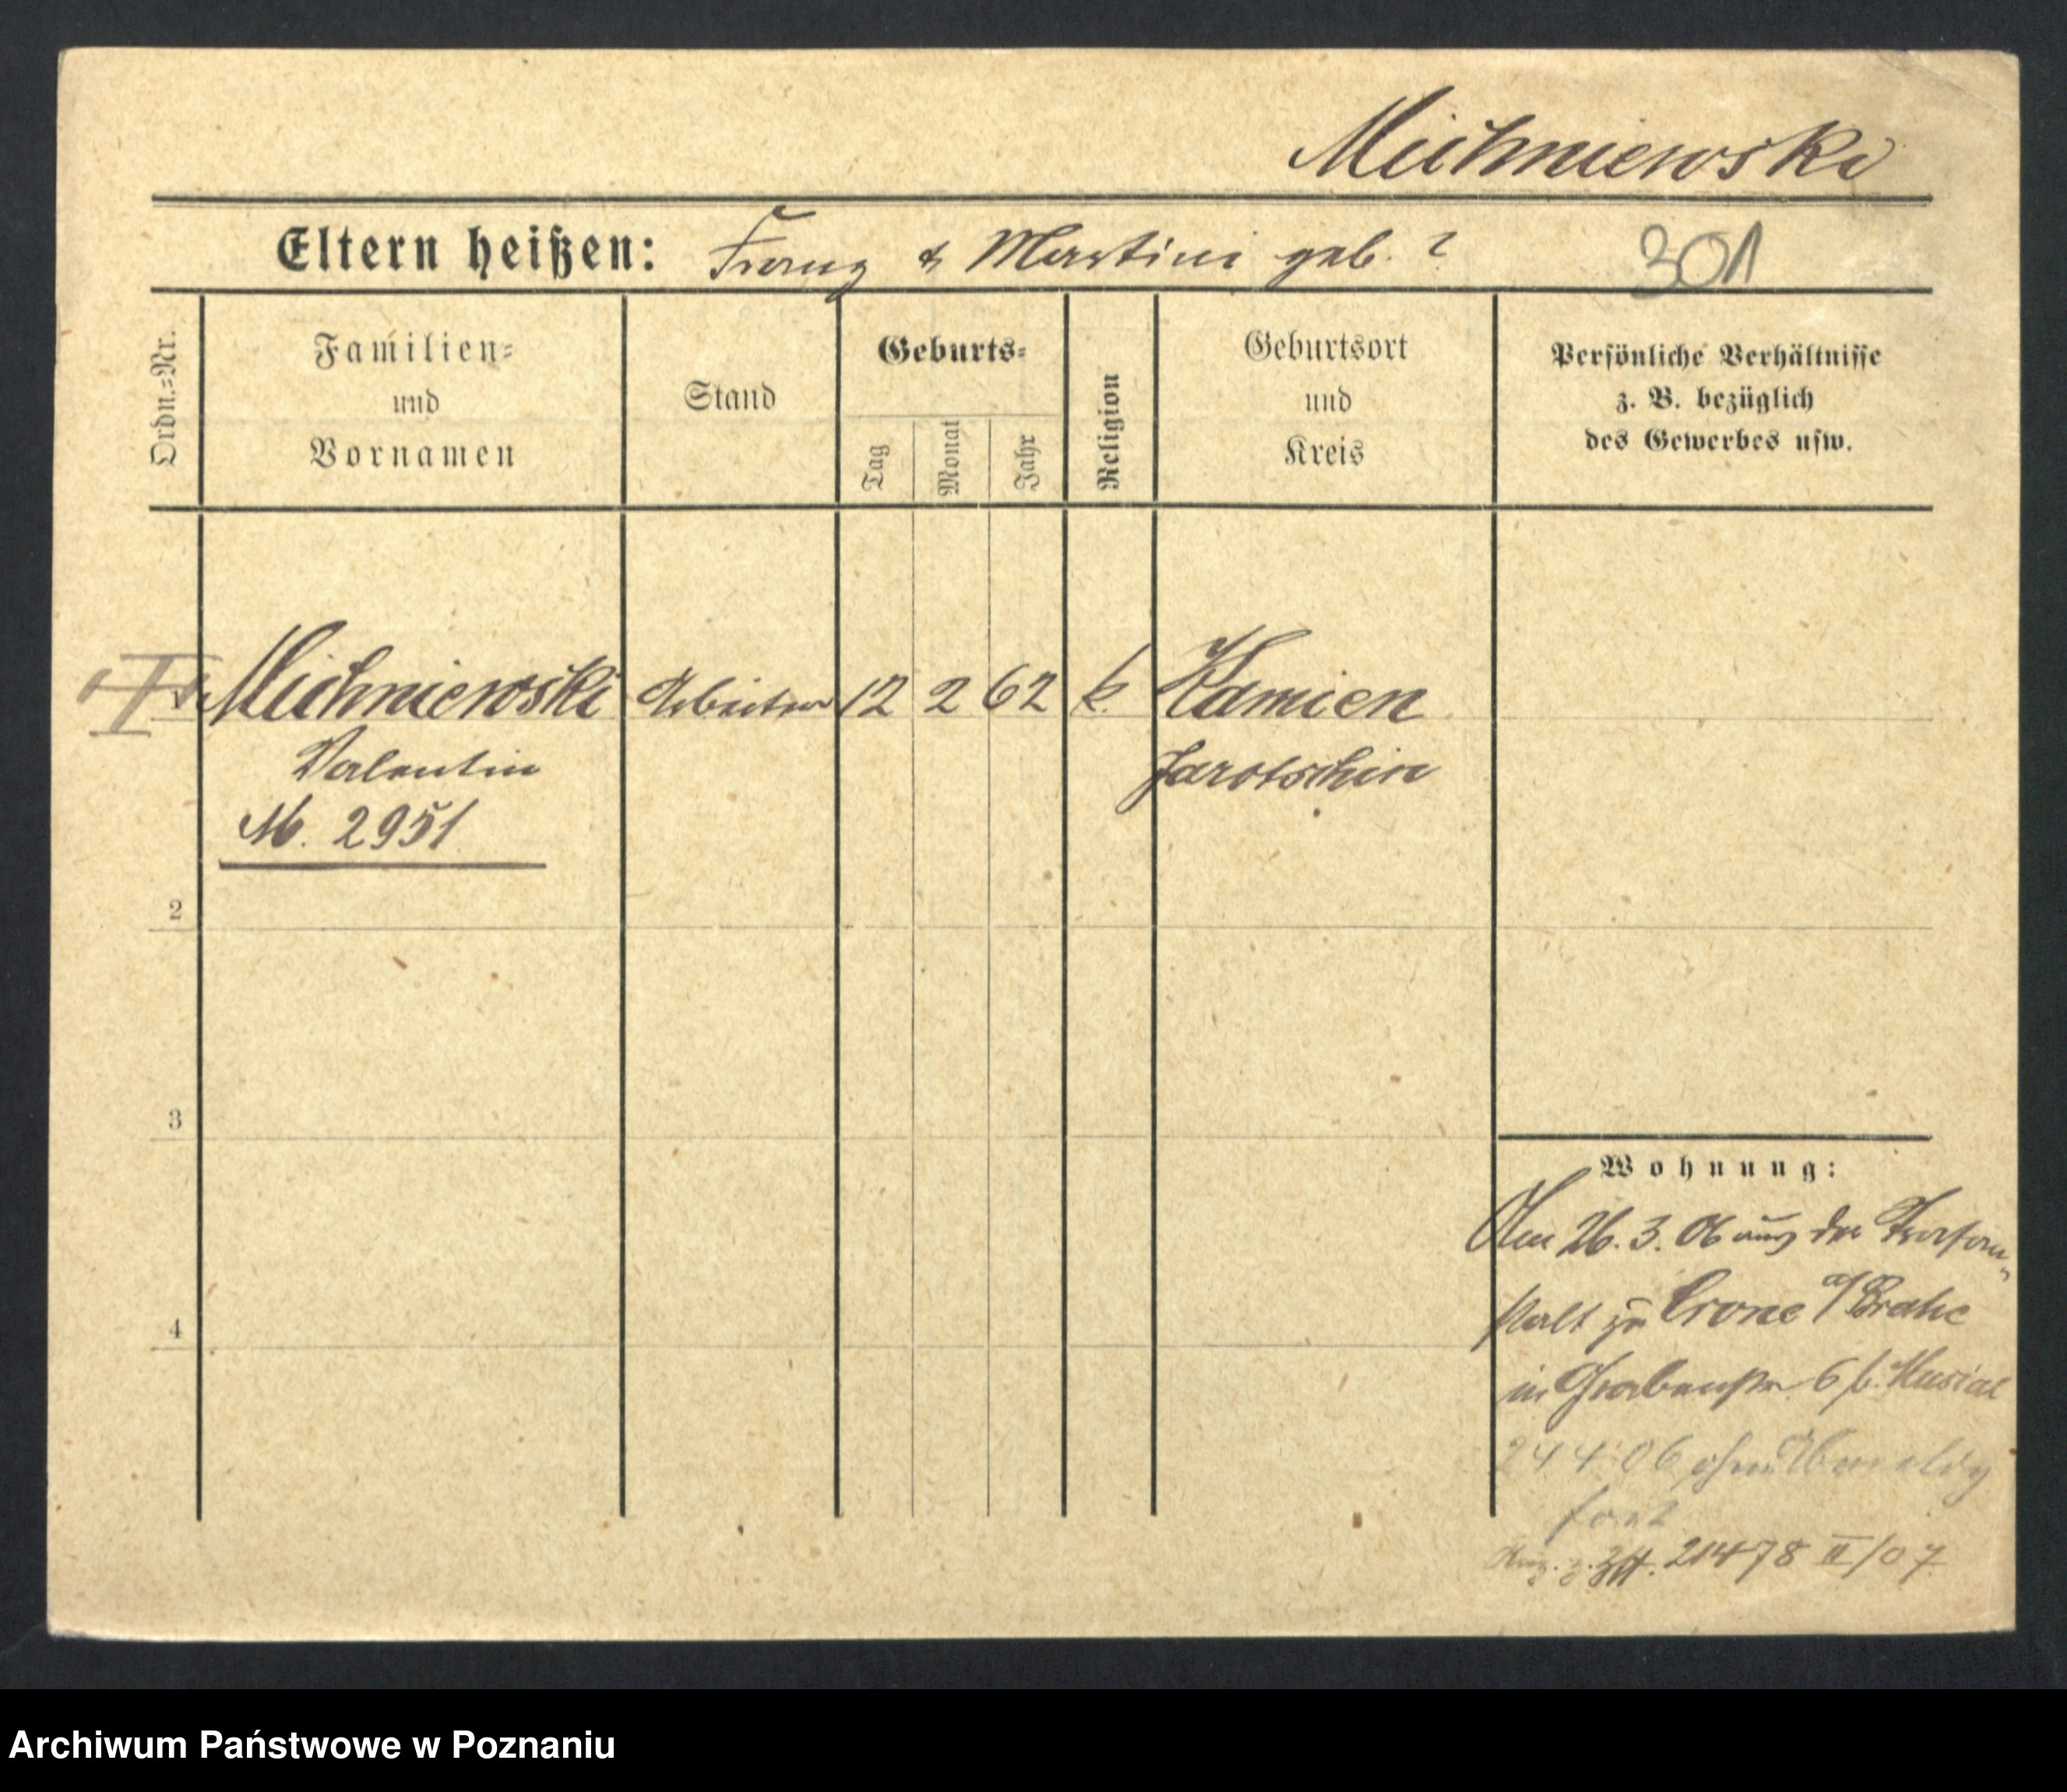 Michniewski
Eltern heißen: Franz & Martini geb. ?
301
Ordn.-Nr.
Familien-
und
Vornamen
Stand
Geburts-
Tag
Monat
Jahr
Religion
Geburtsort
und
Kreis
Persönliche Verhältnisse
z. B. bezüglich
des Gewerbes usw.
Michniewski Arbeiter 12 2 62 k. Kamien
Valentin Jarotschin
M. 2951
2
3
4
Wohnung:
Am 26.3.06 aus der Strafan-
stalt zu Crone a/Brahe
in Grabenstr. 6 b. Musial
24 4 06 ohne Abmeldg
fort
21478 II/07
Archiwum Państwowe w Poznaniu